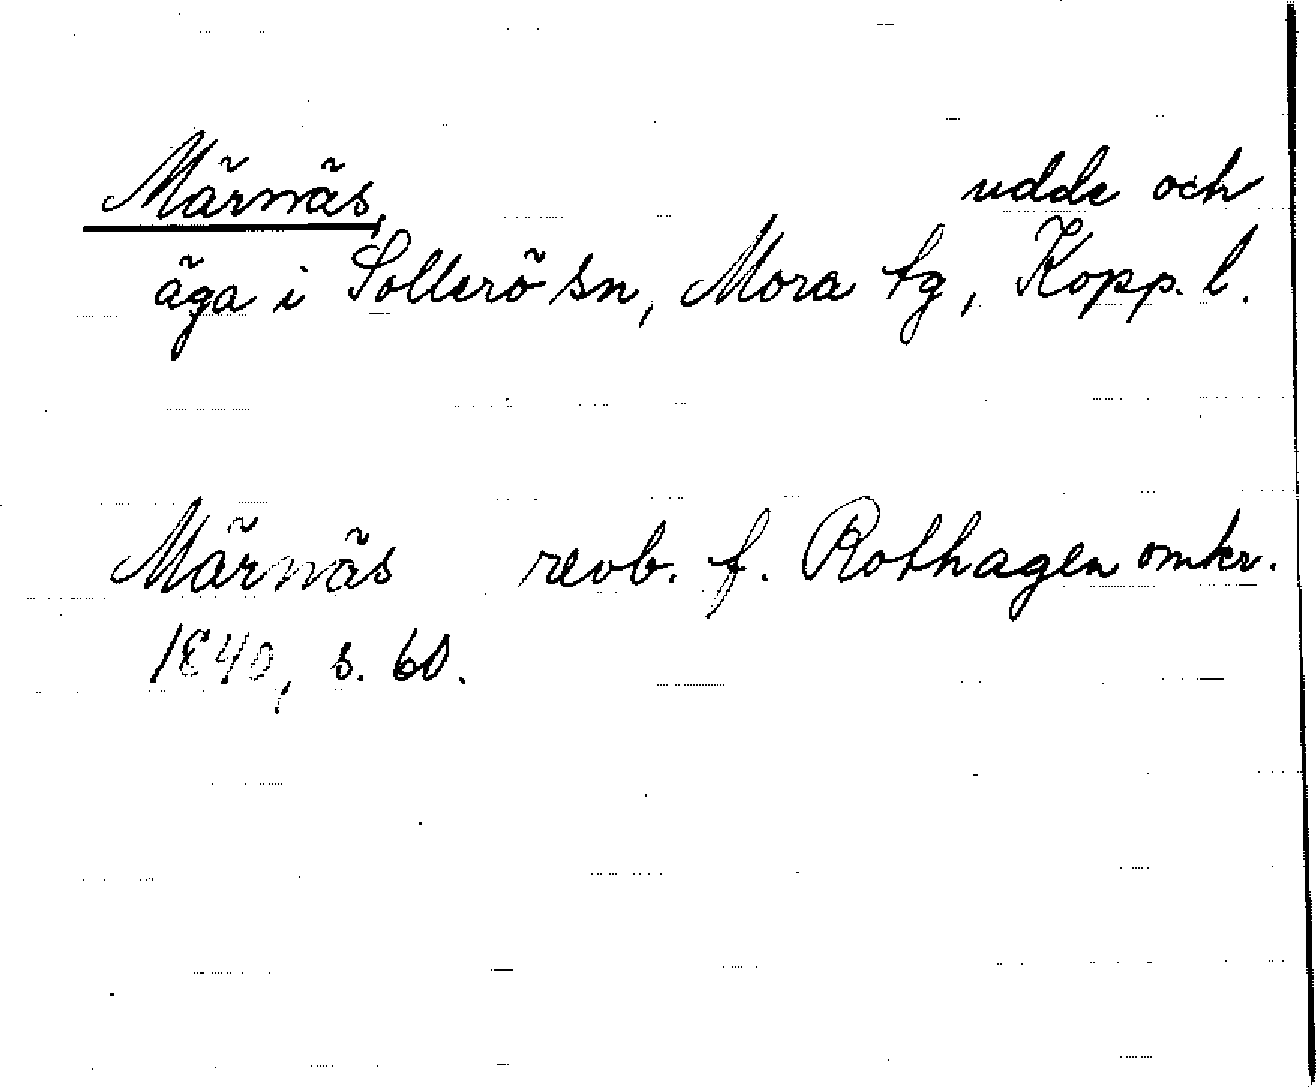 Märnäs, udde och
äga i Sollerö sn, Mora tg, Kopp. l.
Märnäs revb. f. Rothagen omkr.
1840, s. 60.